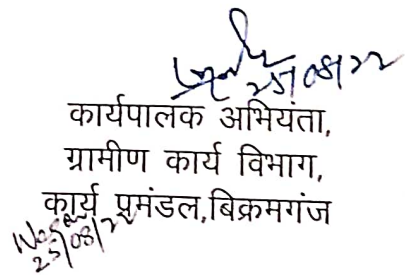 25/08/22
कार्यपालक अभियंता,
ग्रामीण कार्य विभाग,
कार्य प्रमंडल,बिक्रमगंज
25/08/22